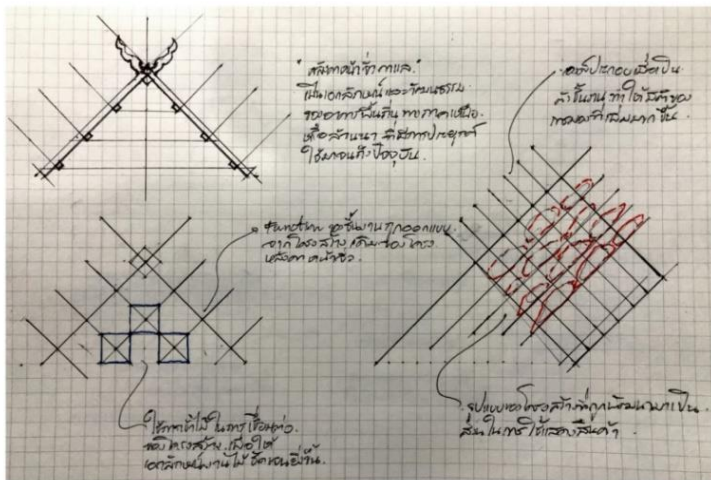 "หลังคาหน้าจั่วกาแล"
เป็นเอกลักษณ์และวัฒนธรรม
ของอาคารพื้นถิ่นทางภาคเหนือ
ล้านนา ที่มีการประยุกต์
ใช้มาจนถึงปัจจุบัน.
องค์ประกอบเมื่อเป็น
ตัวชิ้นงาน ทำให้
มากขึ้น.
function ของชิ้นงานถูกออกแบบ
จากโครงสร้างเดิมของโครง
หลังคาหน้าจั่ว.
ใช้การเข้าไม้ในการเชื่อมต่อ
ของโครงสร้าง เพื่อให้
เอกลักษณ์งานไม้ชัดเจนยิ่งขึ้น.
รูปแบบของโครงสร้างที่ถูกพัฒนามาเป็น
ส่วนในการใช้แสดงสินค้า.